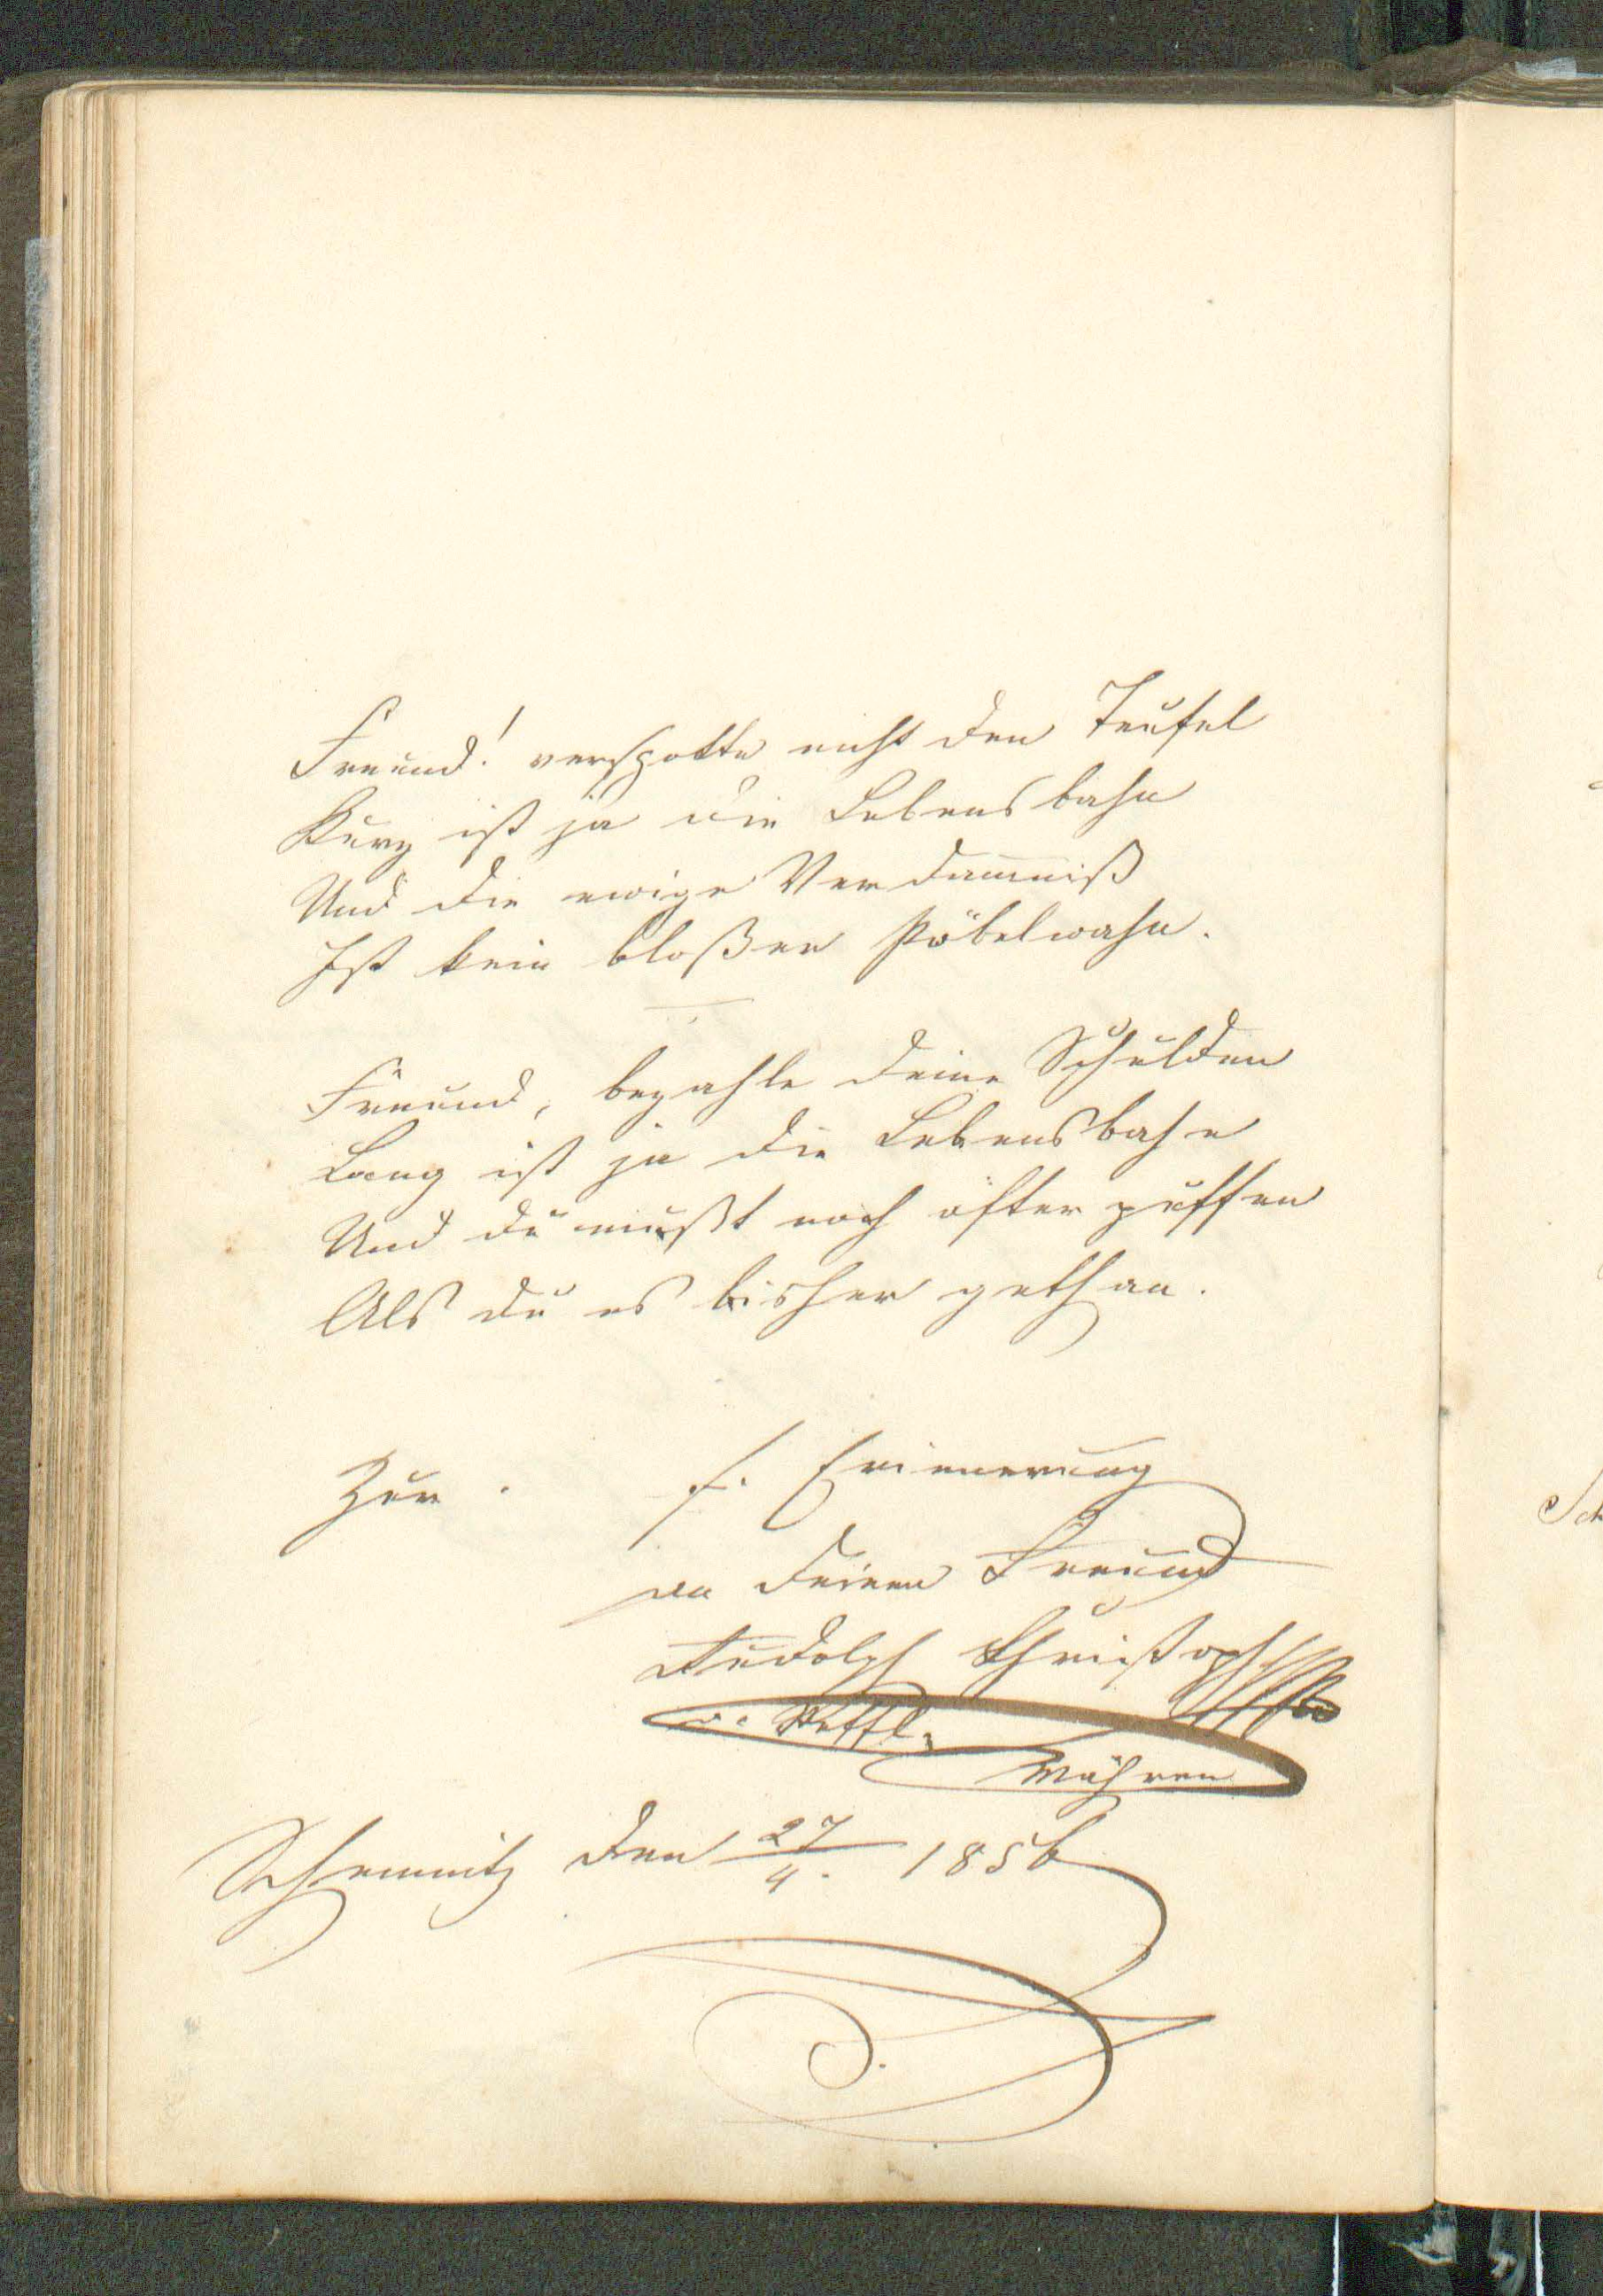 Freund! verspotte nicht den Teufel
Kurz ist ja die Lebensbahn
Und die ewige Verdammniß
Ist kein bloßer Pöbelwahn.
Freund, bezahle deine Schulden
Lang ist ja die Lebensbahn
Und du mußt noch öfter puffen
Als du es bisher gethan.
Zur . f. Erinnerung
an deinen Freund
Rudolph Christoph
Mähren
Schemnitz den 27/4. 1856
Sch